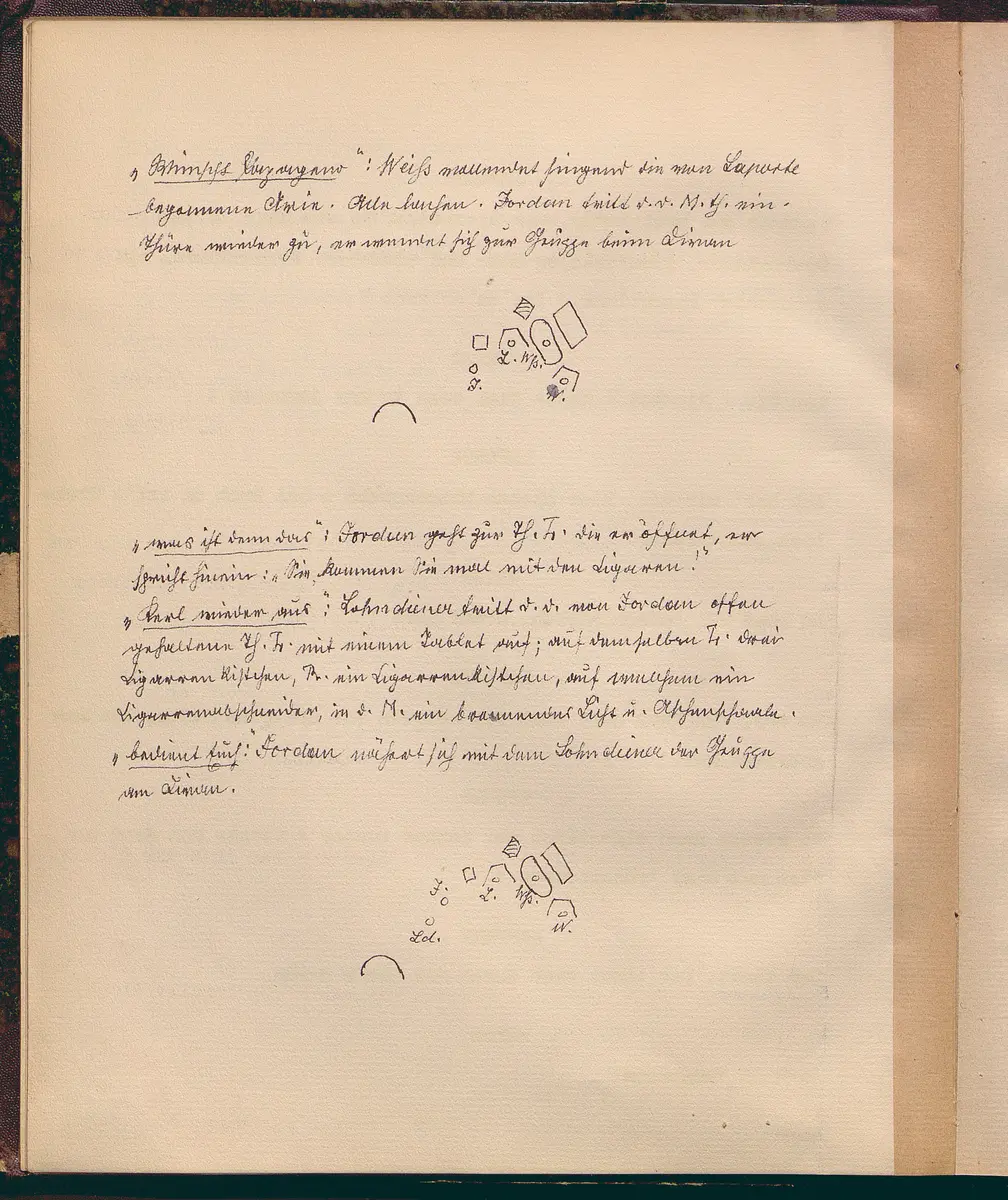 „Wünscht Papageno“: Weiß vollendet singend die von Laporte
begonnene Arie. Alle lachen. Jordan tritt d. d. M. th. ein.
Thüre wieder zu, er wendet sich zur Gruppe beim Divan
L. Wß.
J.
W.
„was ist denn das“: Jordan geht zur Th. Tr. die er öffnet, er
spricht hinein: „Sie, kommen Sie mal mit den Cigarren!“
„Kerl wieder aus“: Lohndiener tritt d. d. von Jordan offen
gehaltene Th. Tr. mit einem Tablet auf; auf demselben Tr. drei
Cigarrenkistchen, Br. ein Cigarrenkistchen, auf welchem ein
Cigarrenabschneider, in d. M. ein brennendes Licht u. Aschenschaale.
„bedient Euch“: Jordan nähert sich mit dem Lohndiener der Gruppe
am Divan.
J.
L. Wß.
W.
Ld.